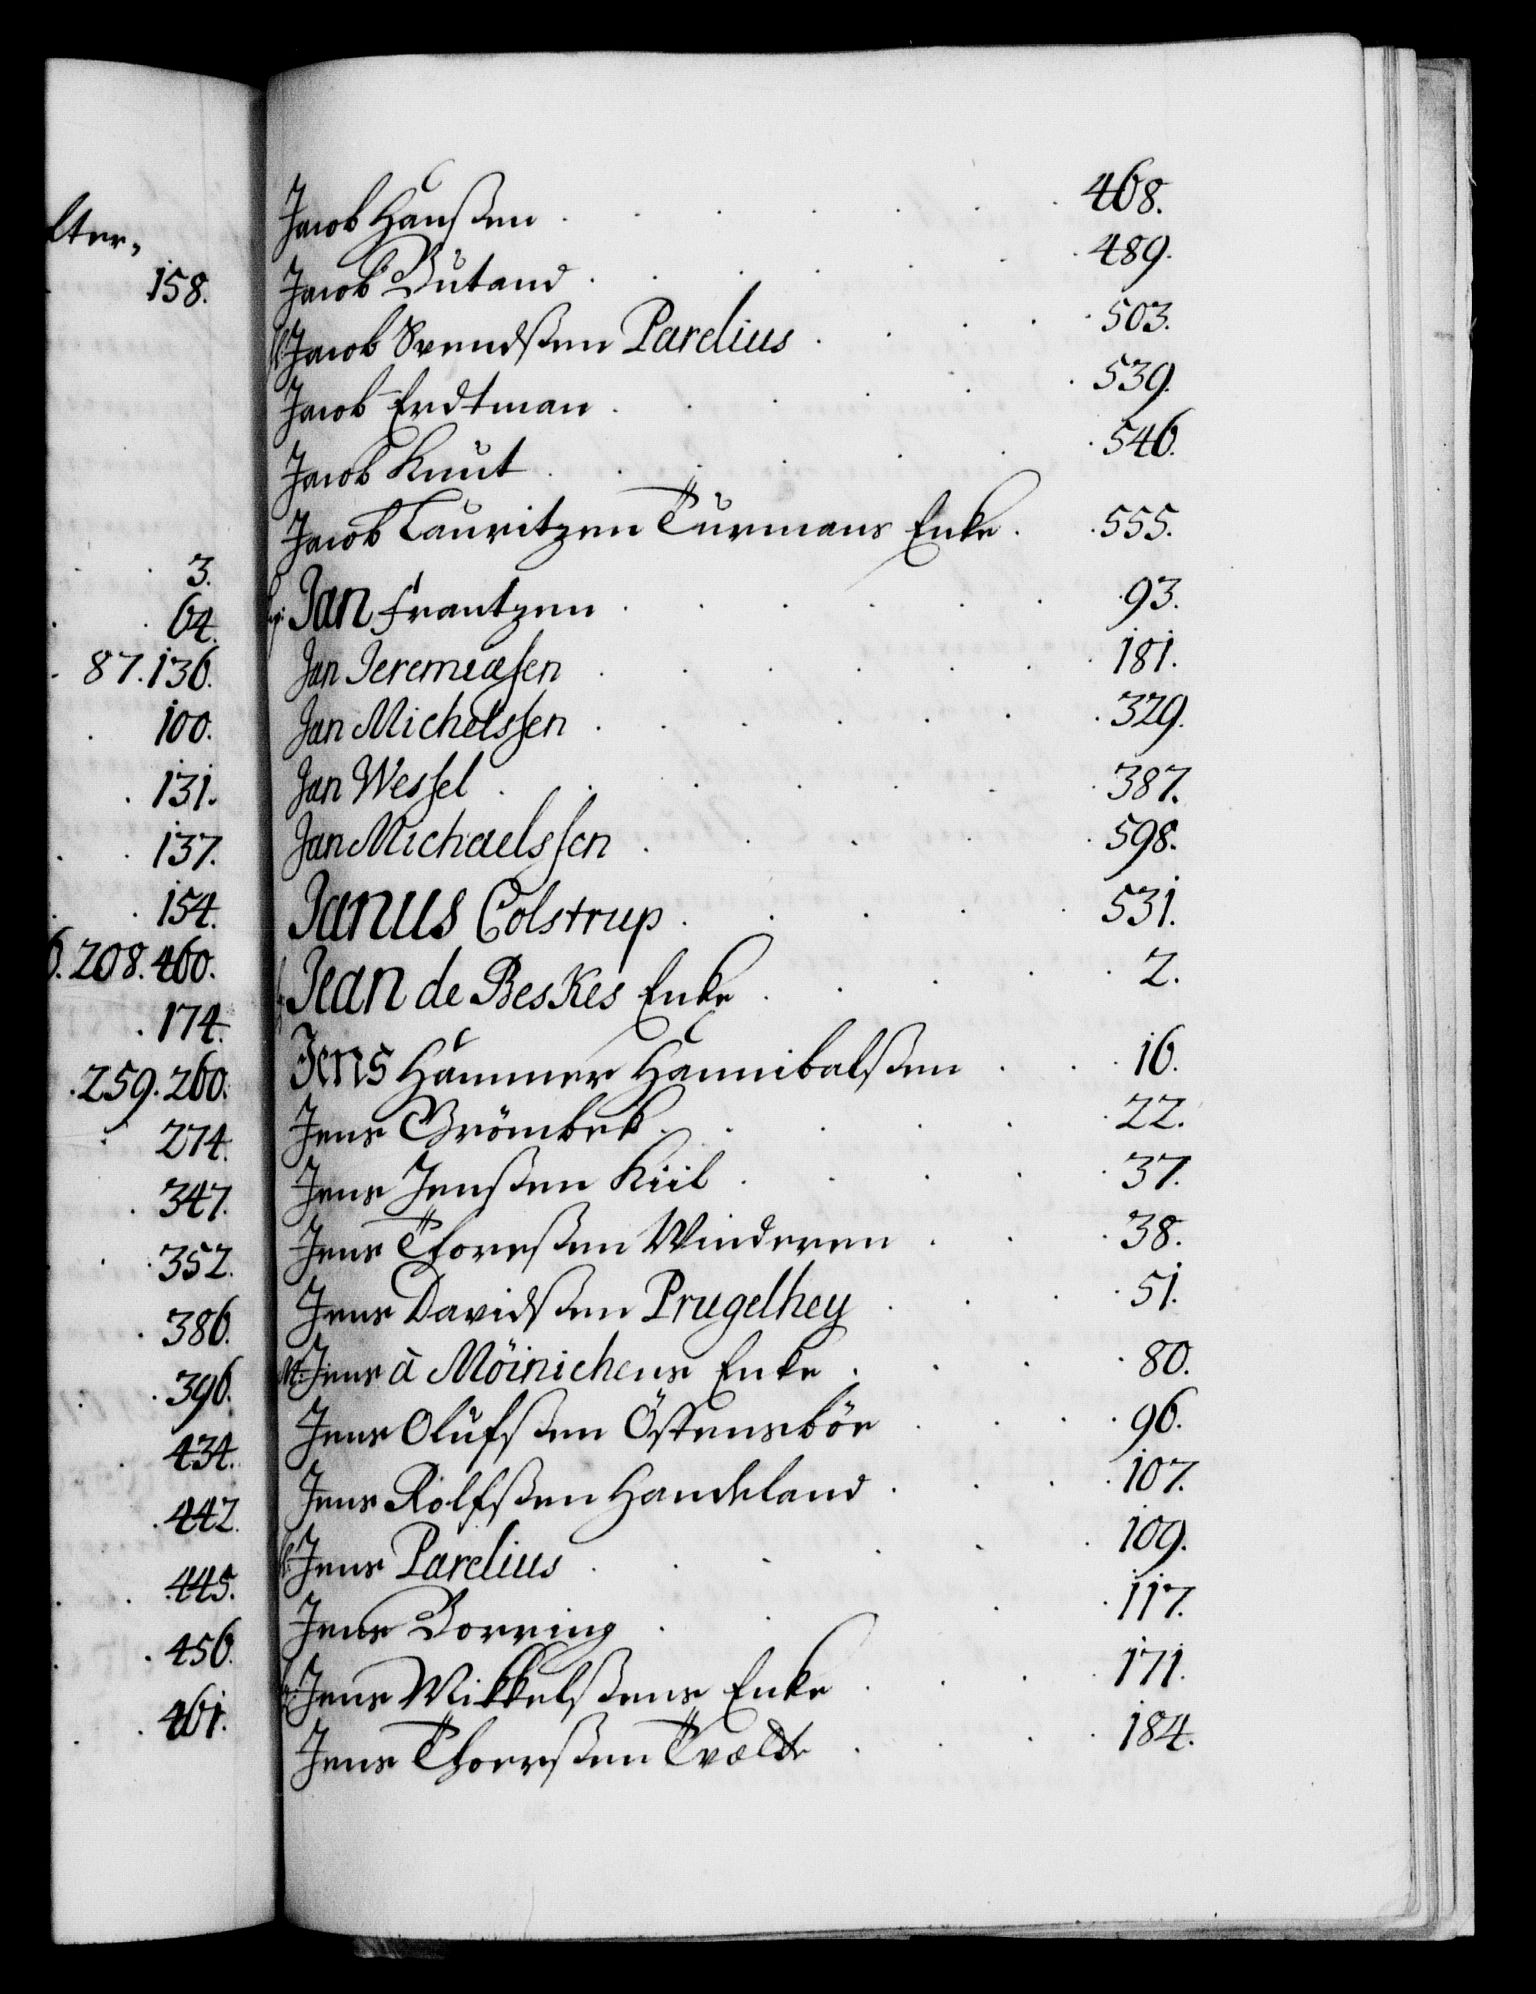 lter,
158.
3.
64.
87. 136.
100.
131.
137.
154.
208. 460.
174.
259. 260.
274.
347.
352.
386.
396.
434.
442.
445.
456.
461.
Jacob Hanßen . . . . . 468.
Jacob Butand . . . . . 489.
Jacob Svendßen Parelius . . . . 503.
Jacob Erdtman . . . . . 539.
Jacob Knut . . . . . 546.
Jacob Lauritzen Turmans Enke . . 555.
Jan Frantzen . . . . . 93.
Jan Jeremiæsen . . . . . 181.
Jan Michelssen . . . . . 329.
Jan Wessel . . . . . 387.
Jan Michaelssen . . . . . 598.
Janus Colstrup . . . . . 531.
Jean de Beskes Enke . . . . 2.
Jens Hammer Hannibalßen . . . 16.
Jens Grömbek . . . . . 22.
Jens Jenßen Kiil . . . . 37.
Jens Thoreßen Winderen . . . 38.
Jens Davidßen Prugelhey . . . 51.
Jens à Möinichens Enke . . . 80.
Jens Olufsßen Östensböe . . . 96.
Jens Rolfsßen Handeland . . . 107.
Jens Parelius . . . . . 109.
Jens Borring . . . 117.
Jens Mikkelsßens Enke . . . 171.
Jens Thoersßen Tvædt . . . 184.